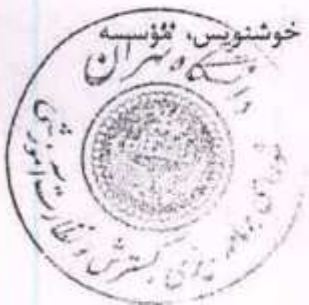 خوشنویس، مؤسسه
دانشگاه تهران
شورای برنامه ریزی گسترش و نظارت آموزشی